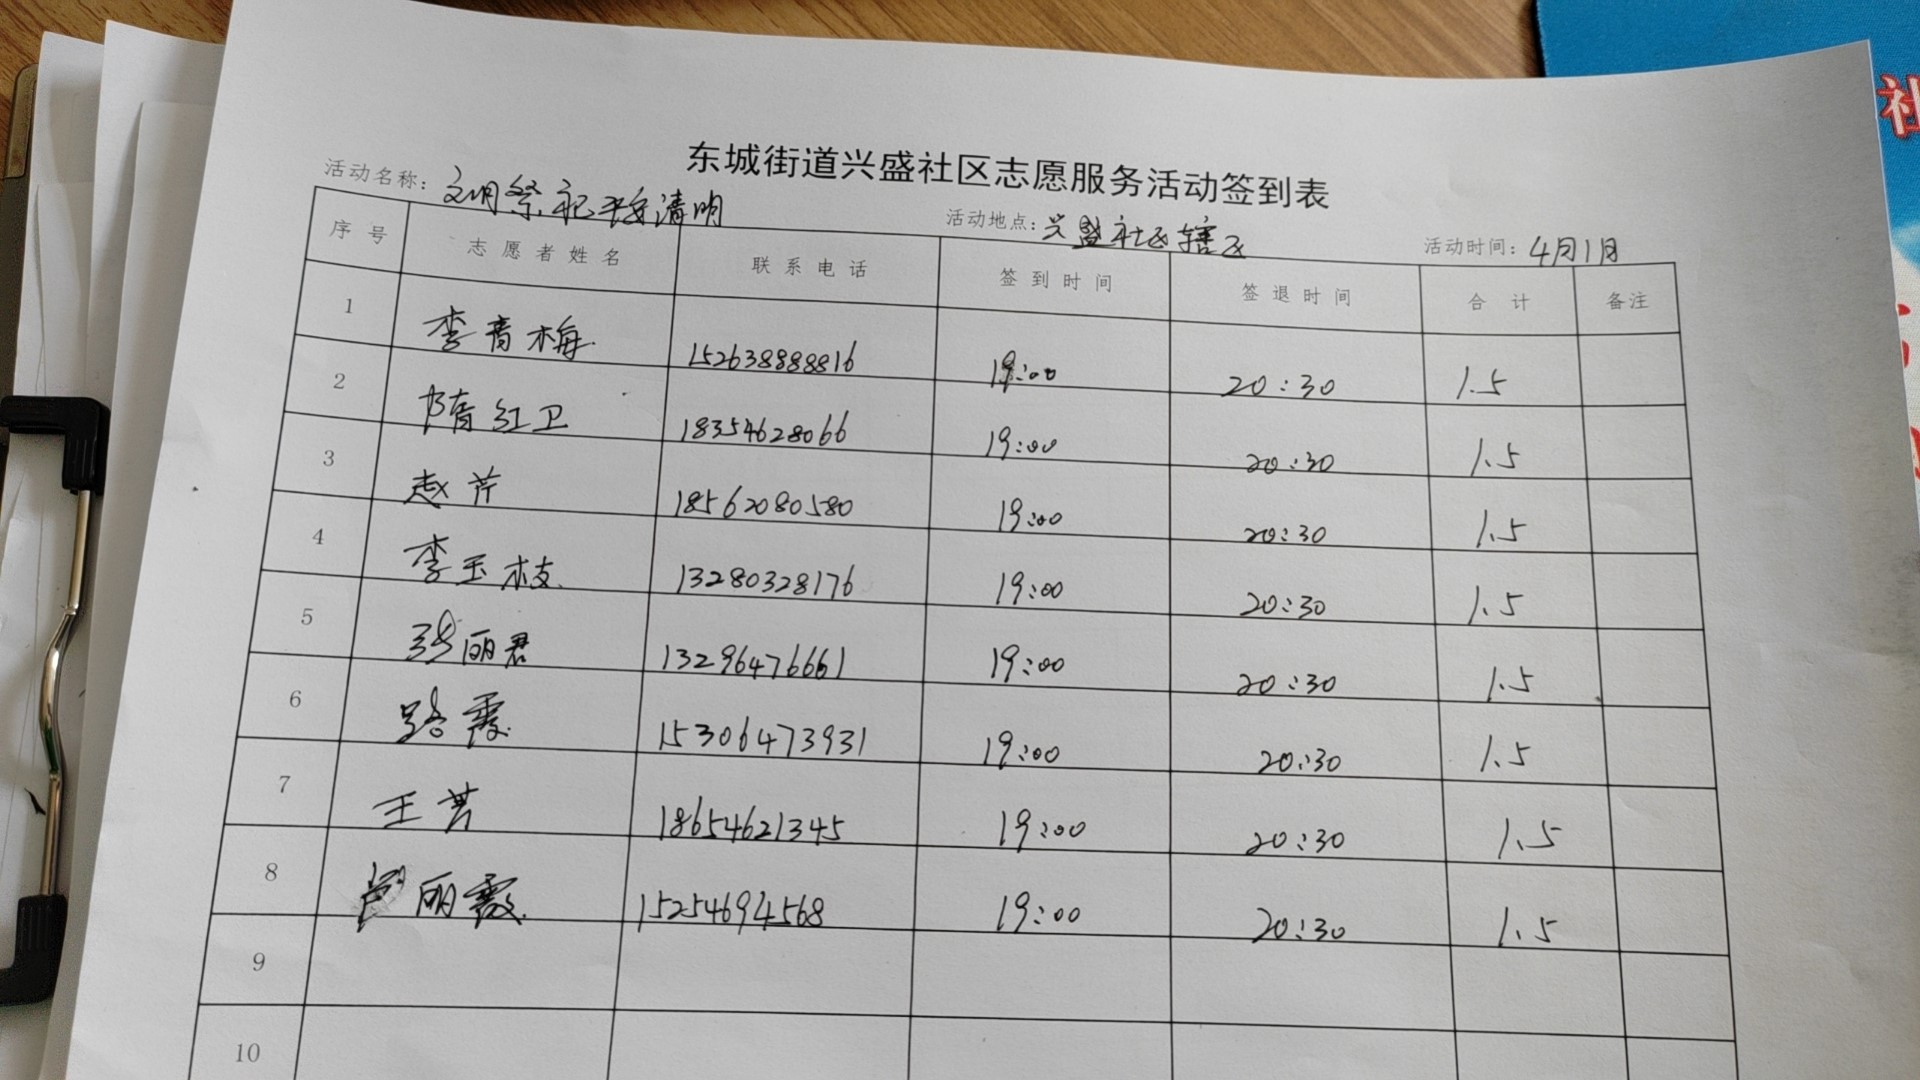 东城街道兴盛社区志愿服务活动签到表
活动名称: 文明祭祀平安清明 活动地点: 兴盛社区辖区 活动时间: 4月1日
序号 志愿者姓名 联系电话 签到时间 签退时间 合计 备注
1 李青梅 15263888816 19:00 20:30 1.5
2 隋红卫 18354628066 19:00 20:30 1.5
3 赵芹 18562080580 19:00 20:30 1.5
4 李玉枝 13280328176 19:00 20:30 1.5
5 张丽君 13296476661 19:00 20:30 1.5
6 路霞 15306473931 19:00 20:30 1.5
7 王芳 18654621345 19:00 20:30 1.5
8 丽霞 15254694568 19:00 20:30 1.5
9
10
社